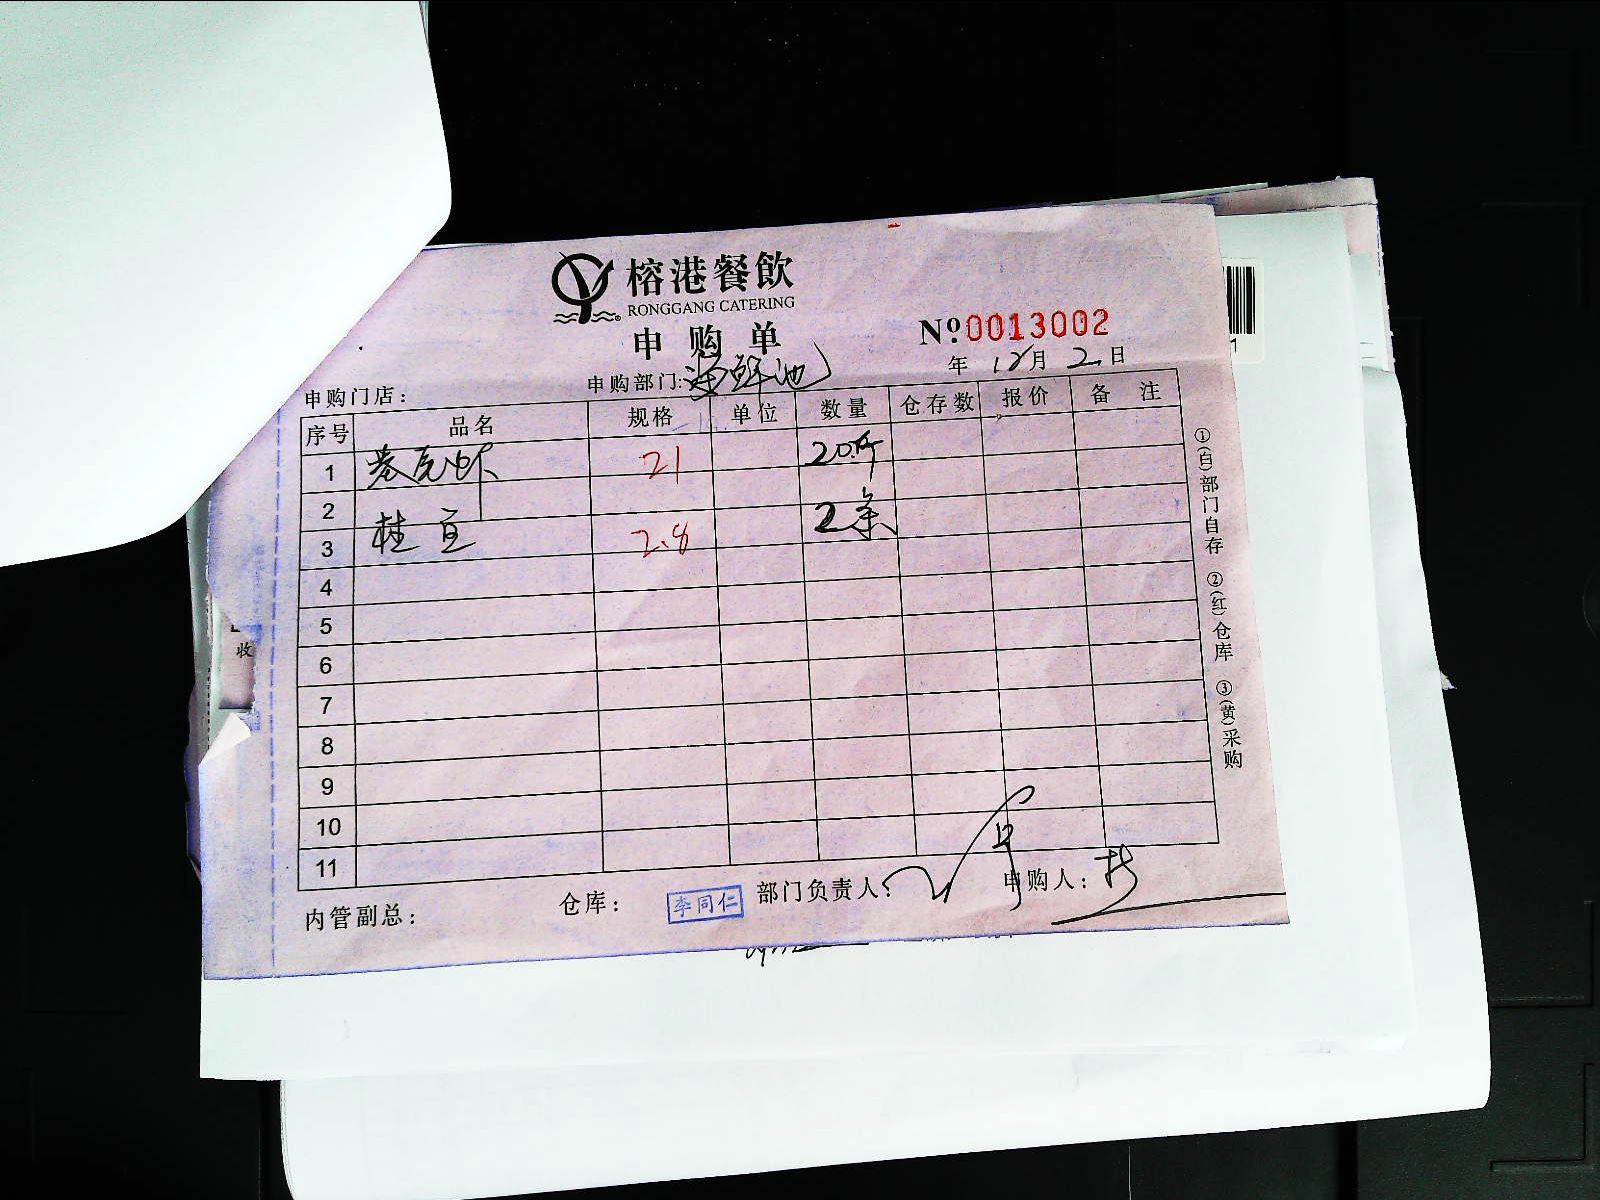 榕港餐飲
RONGGANG CATERING
申购单
№:0013002
年 12月 2日
申购门店：
申购部门:海鲜池
序号 品名 规格 单位 数量 仓存数 报价 备注
1 老虎虾 21 20斤
2
3 桂鱼 2.8 2条
4
5
6
7
8
9
10
11
内管副总：
仓库：
李同仁
部门负责人：
申购人：
①(白)部门自存 ②(红)仓库 ③(黄)采购
收
1